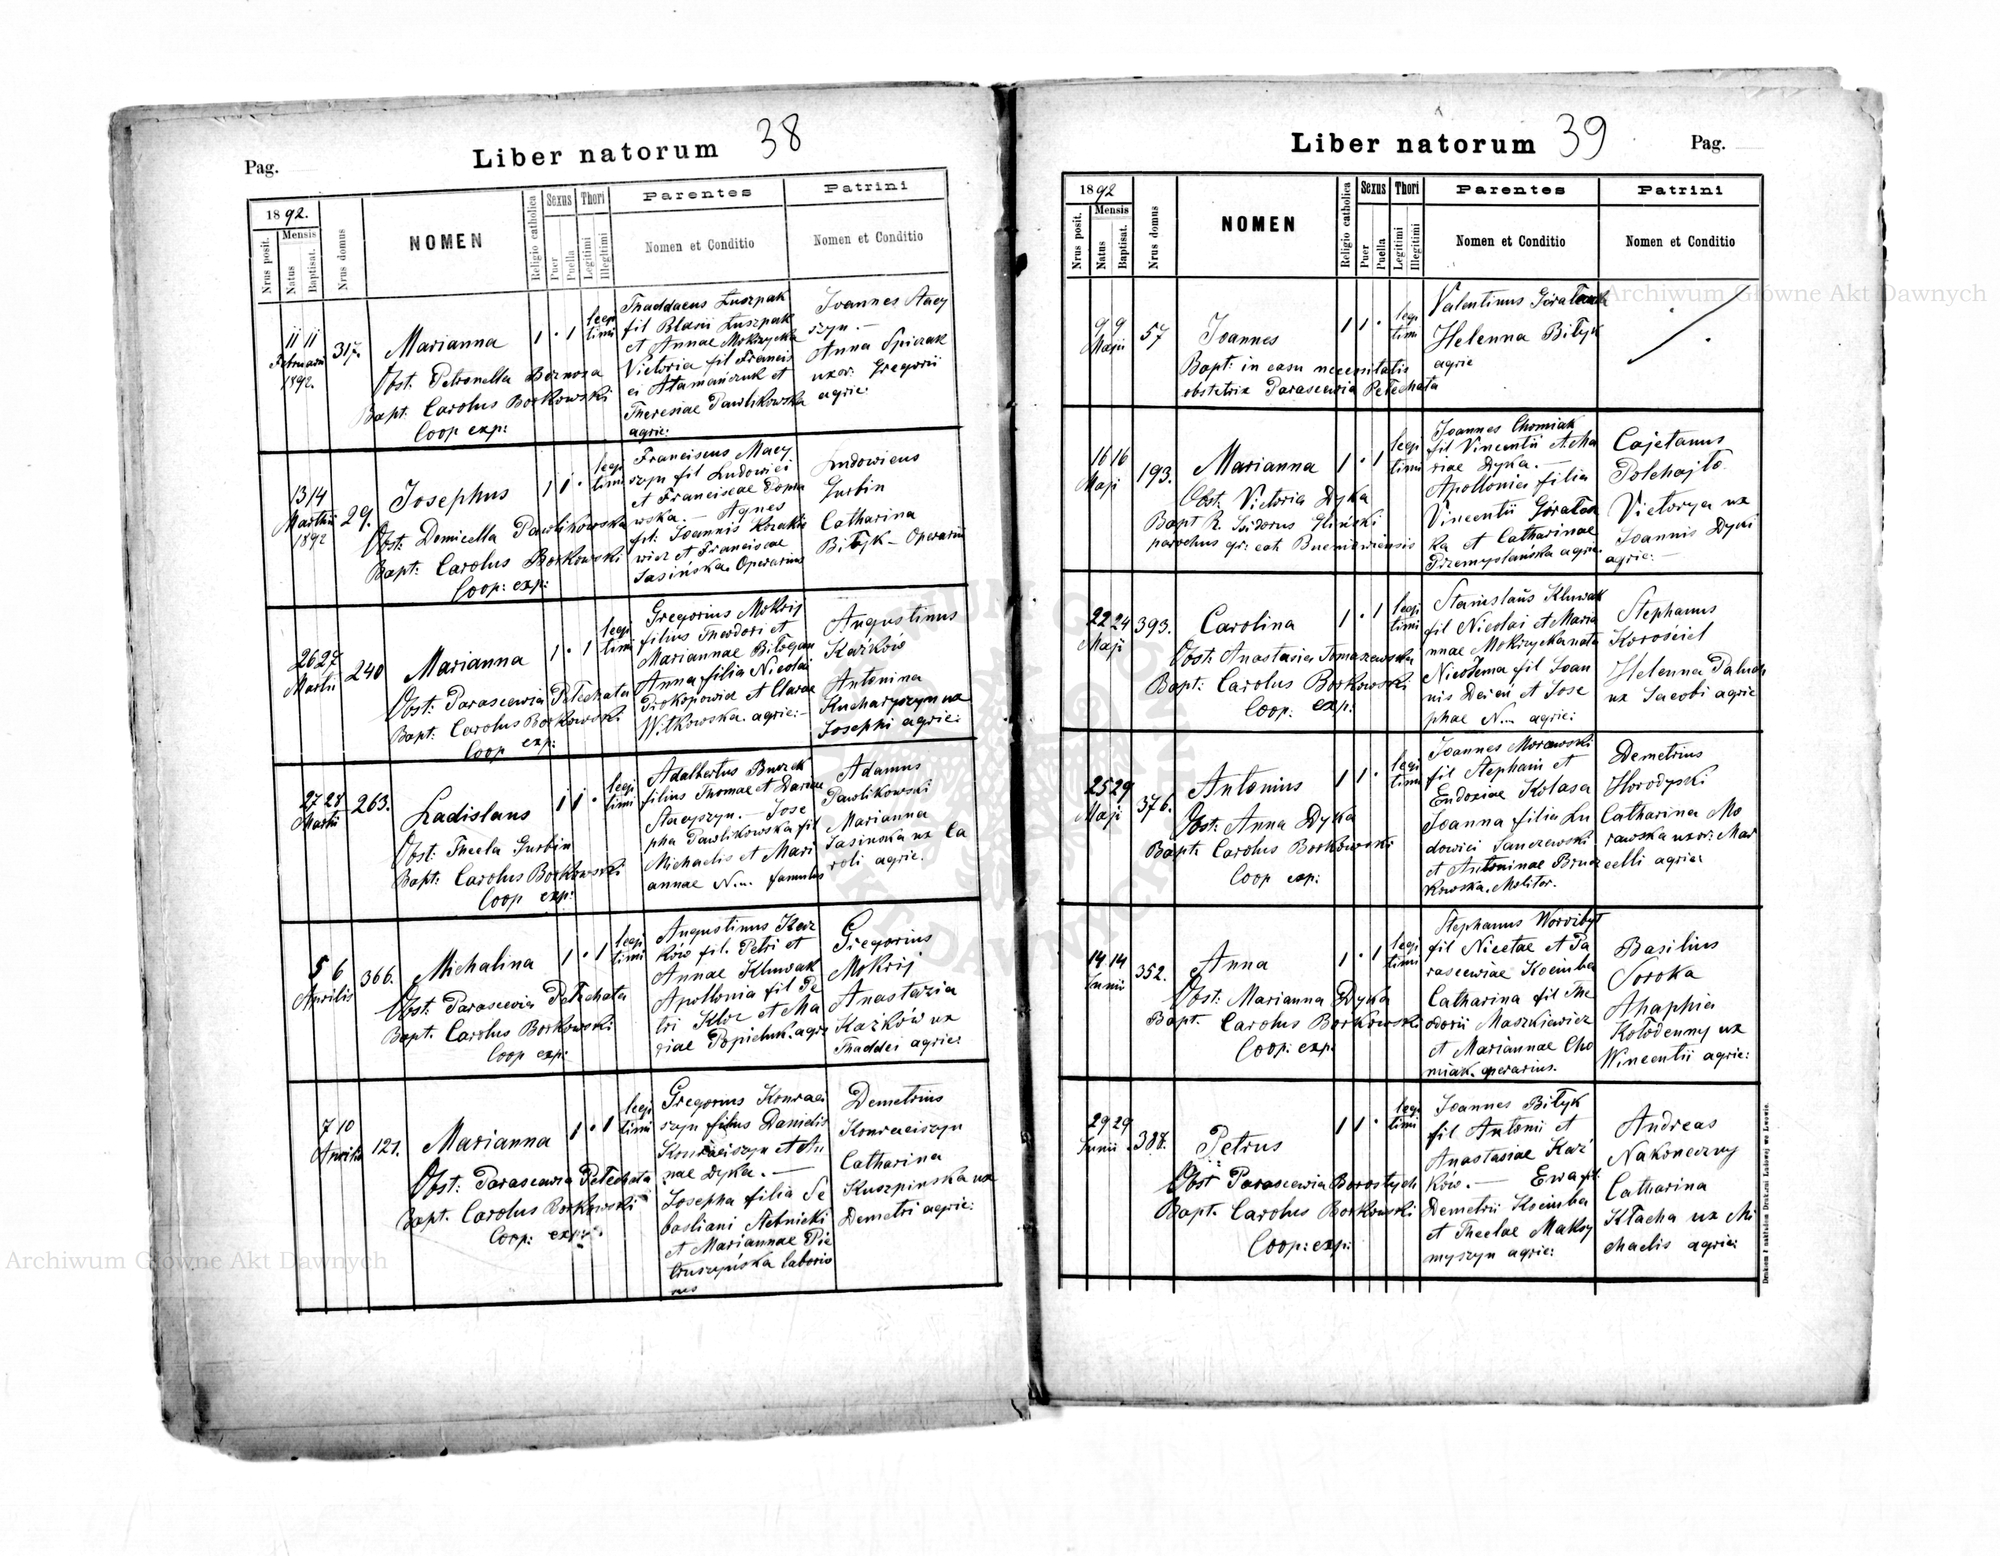 Pag.
Liber natorum 38
1892.
Nrus posit.
Mensis
Natus
Baptisat.
Nrus domus
NOMEN
Religio catholica
Sexus
Puer
Puella
Thori
Legitimi
Illegitimi
Parentes
Nomen et Conditio
Patrini
Nomen et Conditio
11 11
Februarii
1892.
317.
Marianna
Obst. Petronella
Bapt. Carolus Borkowski
Coop exp:
1 · 1
legi
timi
Thaddaeus Łuszpak
fil Blasii Łuszpak
et Annae Mokrzycka
Victoria fil Francis
ci Atamańczuk et
Theresiae Pawlikowska
agric:
Joannes Stacy
szyn. —
Anna Spiczak
uxor: Gregorii
agric:
13 14
Martii
1892
29.
Josephus
Obst: Domicella Pawlikowska
Bapt: Carolus Borkowski
Coop: exp:
1 1 ·
legi
timi
Franciscus Macy
szyn fil Ludovici
et Franciscae
wska. — Agnes
fil: Joannis Kozakie
wicz et Franciscae
Jasińska. Operarius
Ludovicus
Gurbin
Catharina
Biłyk — Operarii
26 27
Martii
240
Marianna
Obst: Parascewia Pełechata
Bapt: Carolus Borkowski
Coop exp:
1 · 1
legi
timi
Gregorius Mokrij
filius Theodori et
Mariannae Biłogan
Anna filia Nicolai
Prokopowicz et Clarae
Witkowska. agric:—
Augustinus
Każków
Antonina
Kucharyszyn ux
Josephi agric:
27 28
Martii
263.
Ladislaus
Obst: Thecla Gurbin
Bapt: Carolus Borkowski
Coop exp:
1 1 ·
legi
timi
Adalbertus Buczek
filius Thomae et Dariae
Stacyszyn. — Jose
pha Pawlikowska fil
Michaelis et Mari
annae N... famulus
Adamus
Pawlikowski
Marianna
Jasinska ux Ca
roli agric:
5 6
Aprilis
366.
Michalina
Obst: Parascewia Pełechata
Bapt: Carolus Borkowski
Coop exp:
1 · 1
legi
timi
Augustinus Każ
ków fil. Petri et
Annae Kluwak
Apollonia fil Pe
tri Kloc et Ma
riae Popieluk. agric
Gregorius
Mokrij
Anastazia
Każków ux
Thaddei agric:
7 10
Aprilis
121.
Marianna
Obst: Parascewia Pełechata
Bapt. Carolus Borkowski
Coop: exp:
1 · 1
legi
timi
Gregorius Konraci
szyn filius Danielis
Konraciszyn et An
nae Dyka. —
Josepha filia Se
bastiani Stebnicki
et Mariannae Pie
truszyńska laborio
sus
Demetrius
Konraciszyn
Catharina
Kuszpinska ux
Demetri agric:
Liber natorum 39
Pag.
1892
Nrus posit.
Mensis
Natus
Baptisat.
Nrus domus
NOMEN
Religio catholica
Sexus
Puer
Puella
Thori
Legitimi
Illegitimi
Parentes
Nomen et Conditio
Patrini
Nomen et Conditio
9 9
Maji
57
Joannes
Bapt: in casu necessitatis
obstetrix Parascewia Pełechata
1 1 ·
legi
timi
Valentinus
Helenna Biłyk
agric
16 16
Maji
193.
Marianna
Obst: Victoria Dyka
Bapt R. Isidorus Gliński
parochus gr: cat:
1 · 1
legi
timi
Joannes Chomiak
fil Vincentii et Ma
riae Dyka. —
Apollonia filia
Vincentii Górałcz
ka et Catharinae
Przemyslańska agric.
Cajetanus
Polehajło
Victorya ux
Joannis Dyki
agric: —
22 24
Maji
393.
Carolina
Obst: Anastasia Tomaszewska
Bapt: Carolus Borkowski
Coop: exp:
1 · 1
legi
timi
Stanislaus Kluwak
fil Nicolai et Maria
nnae Mokrzycka nata
Nicodema fil Joan
nis et Jose
phae N... agric:
Stephanus
Korościel
Helenna Paluch
ux Jacobi agric
25 29
Maji
376.
Antonius
Obst: Anna Dyka
Bapt: Carolus Borkowski
Coop exp:
1 1 ·
legi
timi
Joannes Morawski
fil Stephani et
Eudoxiae Kolasa
Joanna filia Lu
dovici Janczewski
et Antoninae
kowska. Molitor.
Demetrius
Horodyski
Catharina Mo
rawska uxor: Mar
celli agric:
14 14
Junii
352.
Anna
Obst: Marianna Dyka
Bapt. Carolus Borkowski
Coop: exp:
1 · 1
legi
timi
Stephanus Worobyt
fil Nicetae et Pa
rascewiae Kocimba
Catharina fil The
odorii Maszkiewicz
et Mariannae Cho
miak. operarius.
Basilius
Soroka
Ahaphia
Kołodenny ux
Wincentii agric:
29 29
Junii
387.
Petrus
Obst Parascewia Borostych
Bapt. Carolus Borkowski
Coop: exp:
1 1 ·
legi
timi
Joannes Biłyk
fil Antonii et
Anastasiae Każ
ków. — Ewa fil.
Demetrii Kocimba
et Theclae Maksy
myszyn agric:
Andreas
Nakoneczny
Catharina
Kłacha ux Mi
chaelis agric:
Drukiem i nakładem Drukarni Ludowej we Lwowie.
Archiwum Główne Akt Dawnych
Archiwum Główne Akt Dawnych